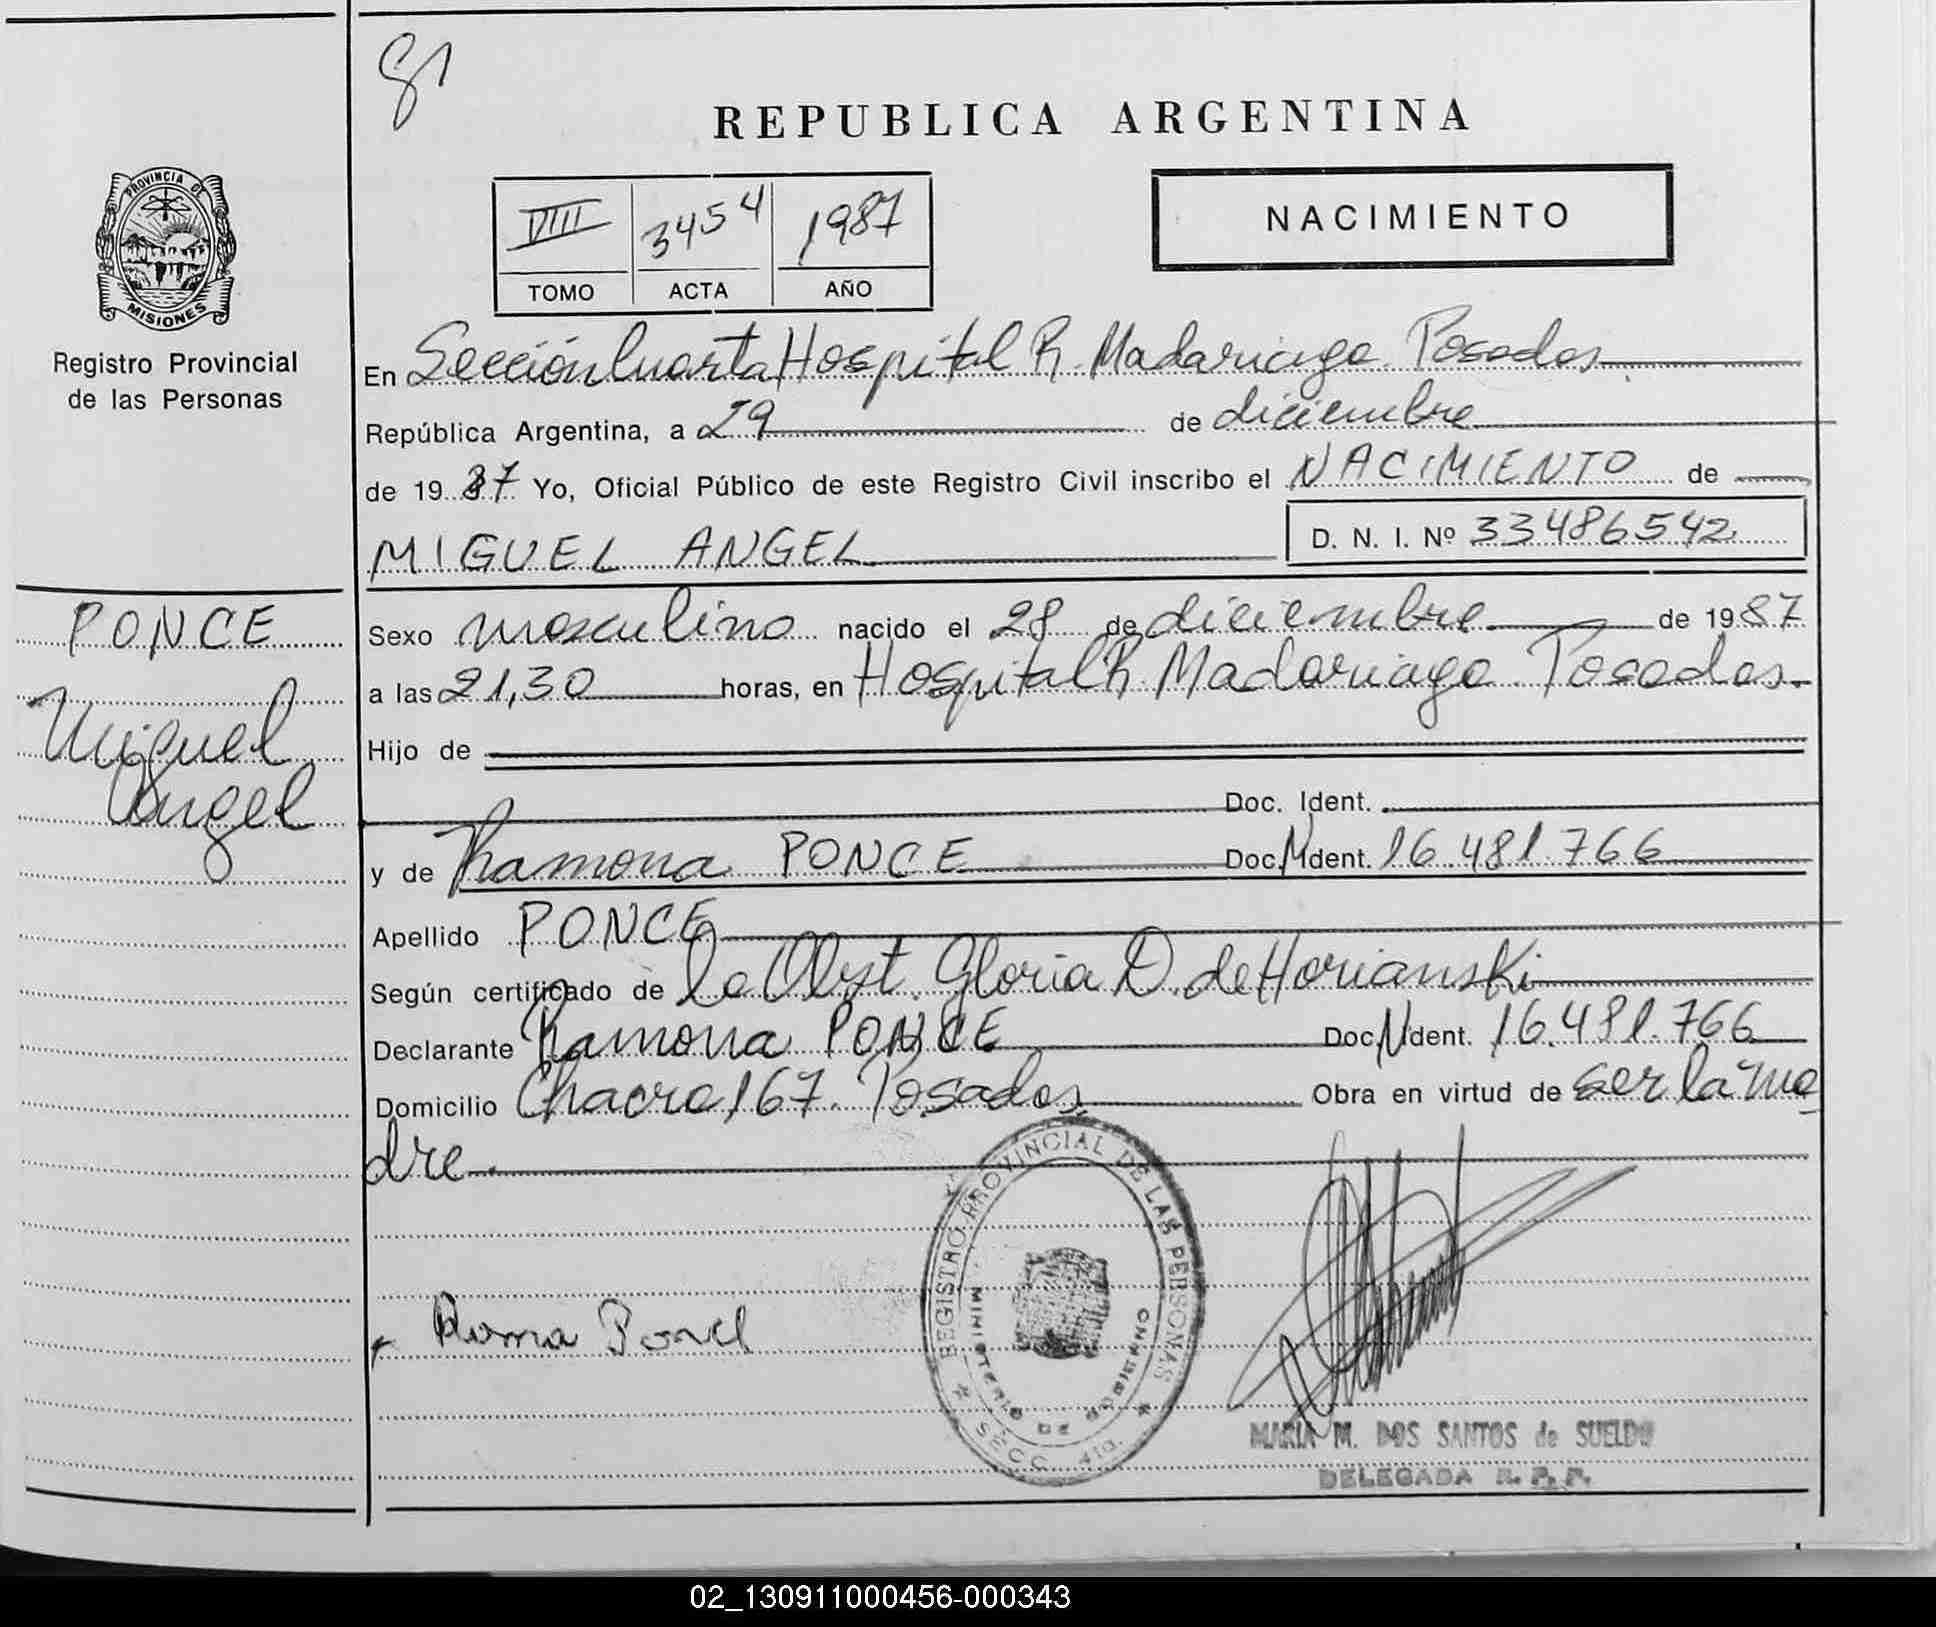 81
REPUBLICA ARGENTINA
PROVINCIA DE
MISIONES
Registro Provincial
de las Personas
VIII 3454 1987
TOMO ACTA AÑO
NACIMIENTO
En Sección Cuarta Hospital R. Madariaga Posadas
República Argentina, a 29 de diciembre
de 1987 Yo, Oficial Público de este Registro Civil inscribo el NACIMIENTO de
MIGUEL ANGEL D. N. I. Nº 33486542
PONCE
Miguel
Angel
Sexo masculino nacido el 28 de diciembre de 1987
a las 21,30 horas, en Hospital R. Madariaga Posadas.
Hijo de
Doc. Ident.
y de Ramona PONCE Doc. Ident. 16.481.766
Apellido PONCE
Según certificado de la Obst. Gloria D. de Horianski
Declarante Ramona PONCE Doc. Ident. 16.481.766
Domicilio Chacra 167. Posadas Obra en virtud de ser la ma
dre.
REGISTRO PROVINCIAL DE LAS PERSONAS
MINISTERIO DE GOBIERNO
SECC. 4ta.
Roma Ponce
MARIA M. DOS SANTOS de SUELDO
DELEGADA R. P. P.
02_130911000456-000343